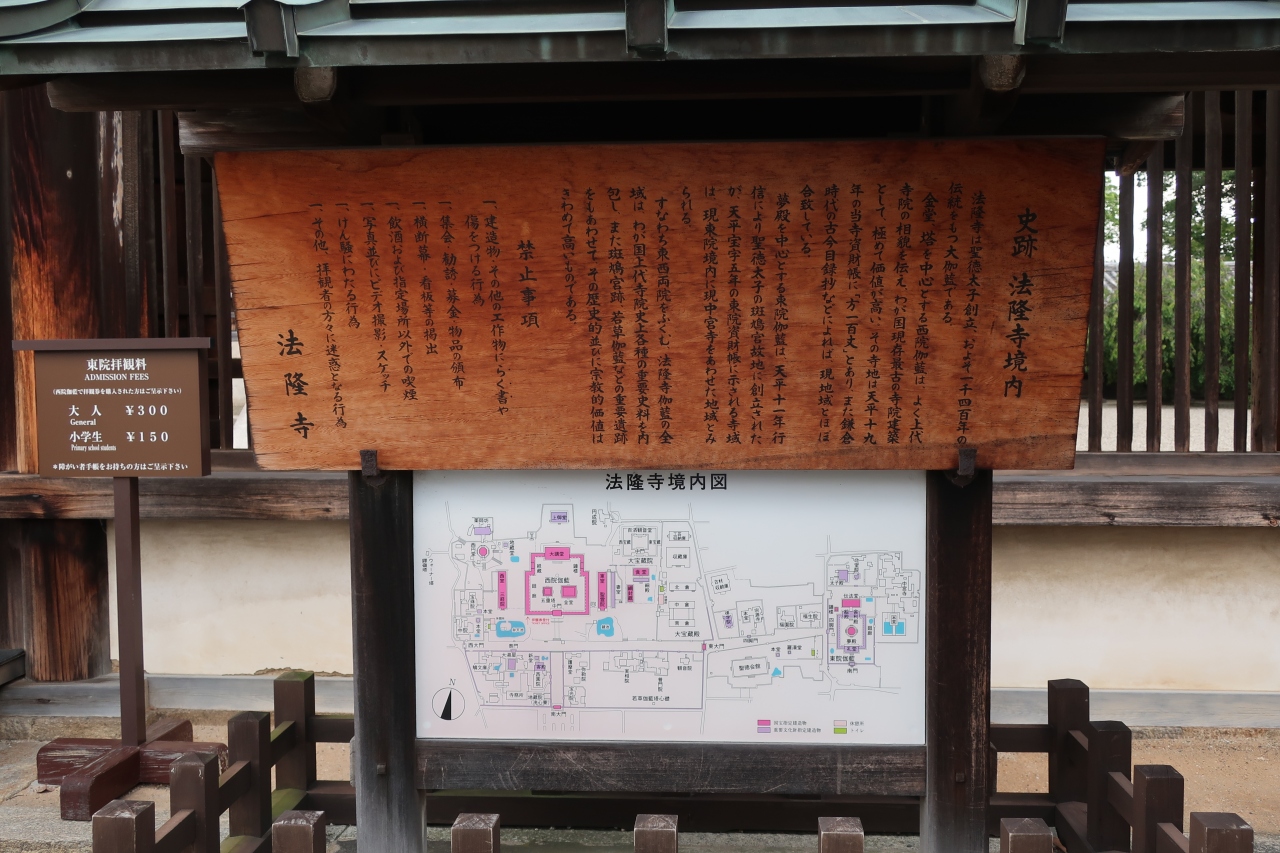 史跡 法隆寺境内
法隆寺は聖徳太子創立、およそ一千四百年の
伝統をもつ大伽藍である。
金堂、塔を中心とする西院伽藍は、よく上代
寺院の相貌を伝え、わが国現存最古の寺院建築
として、極めて価値が高い。その寺地は天平十九
年の当寺資財帳に「方一百丈」とあり、また鎌倉
時代の古今目録抄などによれば、現地域とほぼ
合致している。
夢殿を中心とする東院伽藍は、天平十一年行
信により聖徳太子の斑鳩宮故地に創立された
が、天平宝字五年の東院資財帳に示される寺域
は、現東院境内に現中宮寺をあわせた地域とみ
られる。
すなわち東西両院をふくむ、法隆寺伽藍の全
域は、わが国上代寺院史上各種の重要史料を内
包し、また斑鳩宮跡、若草伽藍などの重要遺跡
をもあわせて、その歴史的並びに宗教的価値は
きわめて高いものである。
禁止事項
一、建造物、その他の工作物にらく書や
傷をつける行為
一、集会、勧誘、募金、物品の頒布
一、横断幕、看板等の掲出
一、飲酒および指定場所以外での喫煙
一、写真並びにビデオ撮影、スケッチ
一、けん騒にわたる行為
一、その他、拝観者の方々に迷惑となる行為
法隆寺
東院拝観料
ADMISSION FEES
(西院伽藍で拝観券を購入された方はご呈示下さい)
大人 ¥300
General
小学生 ¥150
Primary school students
*障がい者手帳をお持ちの方はご呈示下さい
法隆寺境内図
上御堂
大講堂
西院伽藍
五重塔
金堂
中門
大宝蔵院
大宝蔵殿
西大門
東大門
南大門
聖徳会館
若草伽藍塔心礎
夢殿
東院伽藍
南門
N
国宝指定建造物
重要文化財指定建造物
休憩所
トイレ